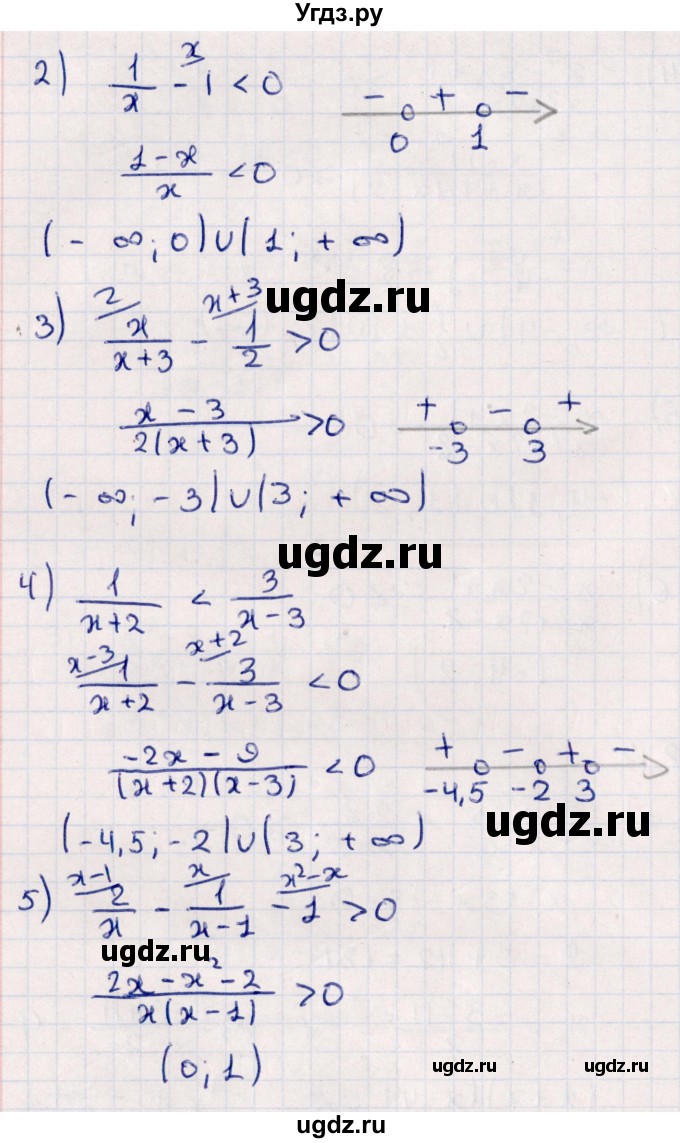 Угдз.ру
2) 1/x - 1 < 0
x
- + -
0 1
(1-x)/x < 0
(- ∞; 0) ∪ (1; + ∞)
ugdz.ru
3) x/(x+3) - 1/2 > 0
2 x+3
(x - 3)/(2(x+3)) > 0
+ - +
-3 3
(- ∞; - 3) ∪ (3; + ∞)
ugdz.ru
4) 1/(x+2) < 3/(x-3)
x-3 x+2
1/(x+2) - 3/(x-3) < 0
(-2x - 9)/((x+2)(x-3)) < 0
+ - + -
-4,5 -2 3
ugdz.ru
(-4,5; -2) ∪ (3; + ∞)
x-1 x x²-x
5) 2/x - 1/(x-1) - 1 > 0
ugdz.ru
(2x - x² - 2)/(x(x-1)) > 0
(0; 1)
ugdz.ru
ugdz.ru
ugdz.ru